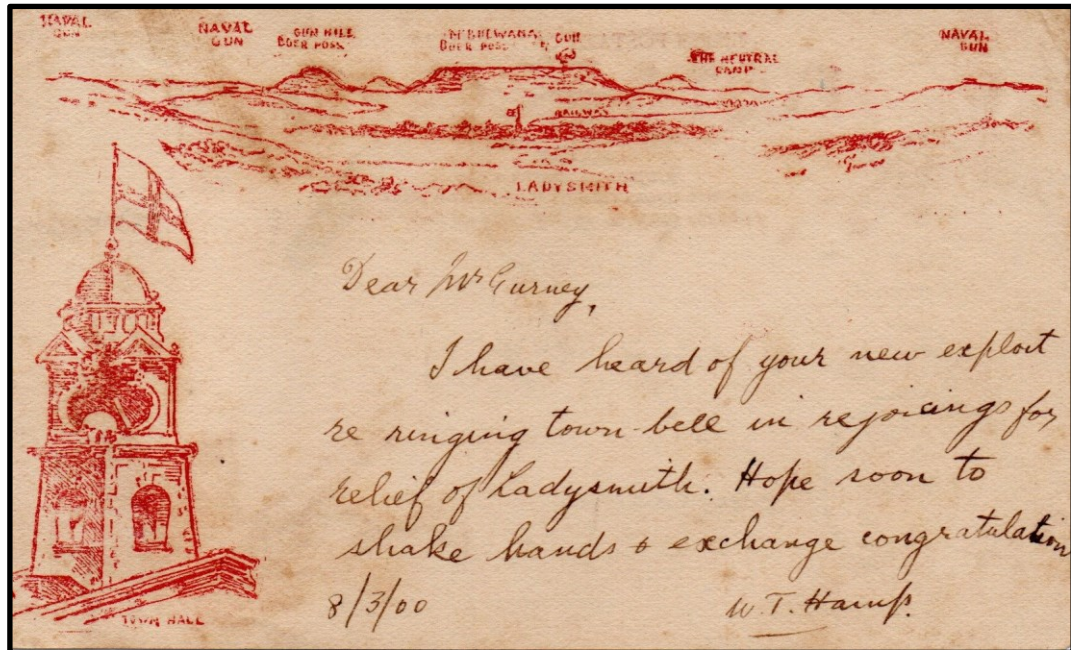 NAVAL
GUN
NAVAL
GUN
GUN HILL
BOER POSN
M'BULWANA
BOER POSN
GUN
THE NEUTRAL
CAMP
NAVAL
GUN
RAILWAY
LADYSMITH
Dear Mr Gurney,
I have heard of your new exploit
re ringing town-bell in rejoicings for
relief of Ladysmith. Hope soon to
shake hands & exchange congratulation
8/3/00
W. T. Hamp.
TOWN HALL